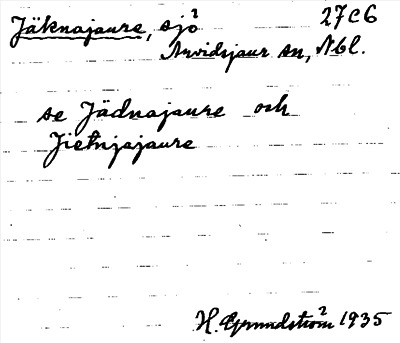 Jäknajaure, sjö 27C6
Arvidsjaur sn, Nbl.
se Jädnajaure och
Jietnjajaure
H. Grundström 1935